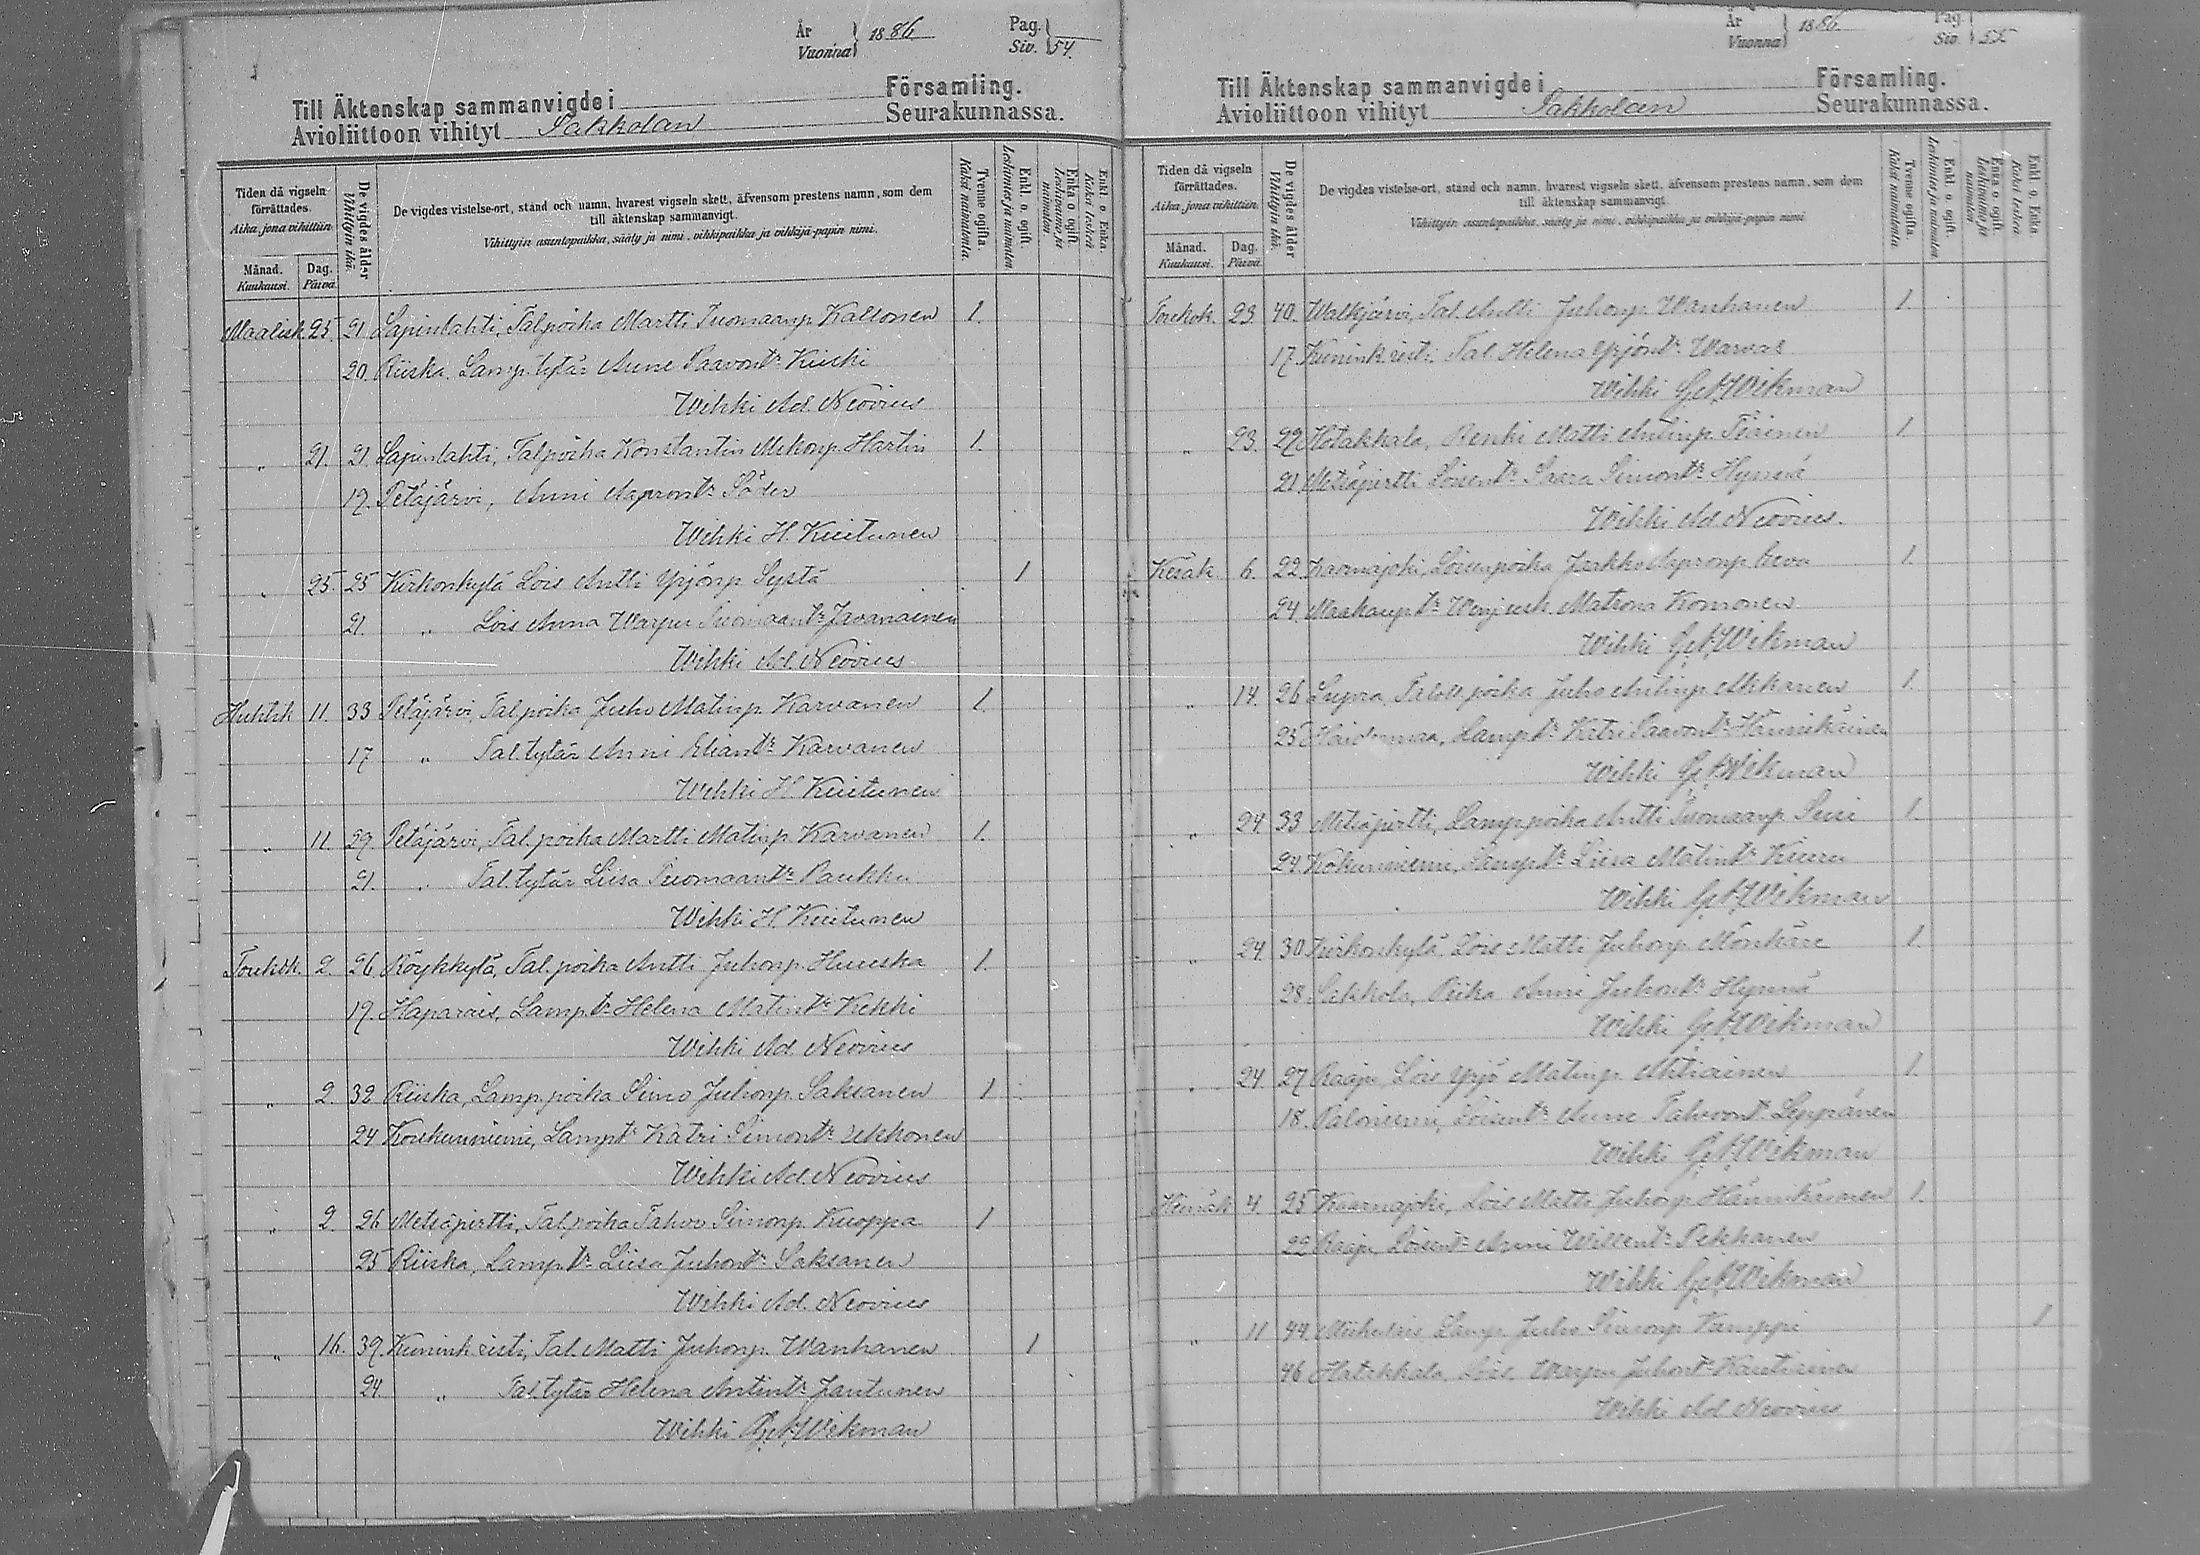 År
Vuonna 1886
Pag.
Siv. 54.
Till Äktenskap sammanvigde i Församling.
Avioliittoon vihityt Sakkolan Seurakunnassa.
Tiden då vigseln förrättades.
Aika, jona vihittiin
Månad.
Kuukausi.
Dag.
Päivä
De vigdes ålder
Vihittyin ikä.
De vigdes vistelse-ort, stånd och namn, hvarest vigseln skett, äfvensom prestens namn, som dem till äktenskap sammanvigt.
Vihittyin asuntopaikka, sääty ja nimi, vihkipaikka ja vihkijä-papin nimi.
Tvenne ogifta.
Kaksi naimatonta.
Enkl. o. ogift.
Leskimies ja naimaton
Enka o ogift
Leskivaimo ja naimaton
Enkl. o. Enka.
Kaksi leskeä
Maalisk. 25. 21 Lapinlahti, Talpoika Martti Tuomaanp. Kallonen 1.
20. Riiska. Lamp. tytär Anne Paavont. Kiiski
Wihki Ad. Neovius
„ 21. 21. Lapinlahti, Talpoika Konstantin Mikonp. Hartin 1.
19. Petäjärvi, Anni Aapront.
Wihki H. Kuitunen
„ 25. 25 Kirkonkylä Lois Antti Yrjönp. Systä 1
21. „ Lois Anna Warpu Tuomaant. Javanainen
Wihki Ad. Neovius
Huhtik 11. 33 Petäjärvi, Tal.poika Juho Matinp. Karvanen 1.
17 „ Tal.tytär Anni Eliant. Karvanen
Wihki H. Kuitunen
„ 11. 29. Petäjärvi, Tal. poika Martti Matinp. Karvanen 1.
21. „ Tal.tytär Liisa Tuomaant. Paukku
Wihki H. Kuitunen
Toukok. 2. 26. Röykkylä, Tal. poika Antti Juhonp. Huuska 1.
19. Haparais, Lamp.t. Helena Matint. Kekki
Wihki Ad. Neovius
„ 2. 32 Riiska, Lamp. poika Simo Juhonp. Saksanen 1
24 Koukunniemi, Lampt. Katri Simont. Ukkonen
Wihki Ad. Neovius
„ 2 26 Metsäpirtti, Tal. poika Tahvo Simonp. Kuoppa 1
25 Riiska, Lamp. t. Liisa Juhont. Saksanen
Wihki Ad. Neovius
„ 16. 39. Kunink. risti, Tal. Matti Juhonp. Wanhanen 1
24. „ Tal.tytär Helena Antint. Jantunen
Wihki G. A. Wikman
År
Vuonna 1886.
Pag
Siv. 55
Till Äktenskap sammanvigde i Församling.
Avioliittoon vihityt Sakkolan Seurakunnassa.
Tiden då vigseln förrättades.
Aika, jona vihittiin.
Månad.
Kuukausi.
Dag.
Päivä
De vigdes ålder
Vihittyin ikä.
De vigdes vistelse-ort, stånd och namn, hvarest vigseln skett, äfvensom prestens namn, som dem till äktenskap sammanvigt.
Vihittyin asuntopaikka, sääty ja nimi, vihkipaikka ja vihkijä-papin nimi
Tvenne ogifta.
Kaksi naimatonta.
Enkl. o. ogift.
Leskimies ja naimaton
Enka o ogift
Leskivaimo ja naimaton
Enkl. o. Enka.
Kaksi leskeä
Toukok. 23. 40. Walkjärvi, Tal. Antti Juhonp. Wanhanen 1.
17. Kunink. risti Tal. Helena Yrjönt. Warvas
Wihki G. A. Wikman
„ 23. 22 Hatakkala, Renki Matti Antinp. 1.
21 Metsäpirtti Loisent. Saara Simont. Hynnä
Wihki Ad. Neovius.
Kesäk. 6. 22 Kaarnajoki, Loisenpoika Jaakko Aapronp. 1.
24 Matrona Komonen
Wihki G. A. Wikman
„ 14. 26 poika Juho Antinp. Akkanen 1.
25 Haitermaa, Lamp. t. Katri Paavont. Hännikäinen
Wihki G. A. Wikman
„ 24 33 Metsäpirtti, Lamp.poika Antti Tuomaanp. 1.
24 Koukunniemi, Lamp.t. Liisa Matint. Kuuru
Wihki G. A. Wikman
„ 24 30 Kirkonkylä Lois Matti Juhonp. Mönkäre 1.
28 Sakkola, Piika Anni Juhont. Hynnä
Wihki G. A. Wikman
„ 24 27 Raaju Lois Yrjö Matinp. Ahtiainen 1.
18. Paloniemi, Loisent. Anne Tahvont. Leppänen
Wihki G. A. Wikman
Heinäk 4. 25 Kaarnajoki, Lois Matti Juhonp. Hännikäinen 1.
22 Raaju Loisent. Anni Willent. Pekkanen
Wihki G. A. Wikman
„ 11 44 Lamp. Juho Simonp. Kamppi 1
46 Hatakkala, Lois. Warpu Juhont.
Wihki Ad Neovius